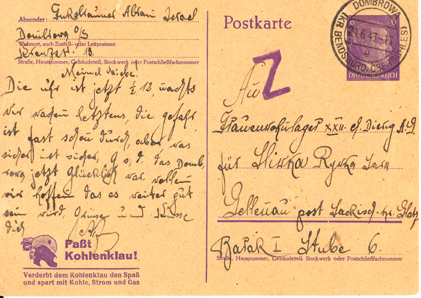 Absender:
Abram Israel
Dombrowa O/S
Wohnort, auch Zustell- oder Leitpostamt
Straße, Hausnummer, Gebäudeteil, Stockwerk oder Postschließfachnummer
Die uhr ist jetzt 1/2 13, nachts
wir wachen die gefahr
ist fast schon durch aber was
sicher ist sicher, G.s.d. das Domb-
rowa jetzt Glücklich war. wollen
wir hoffen das es weiter gut
sein wird, Grüsse und Küsse
dich
Paßt
Kohlenklau!
Verderbt dem Kohlenklau den Spaß
und spart mit Kohle, Strom und Gas
Postkarte
DOMBROWA
Z
An
Frauenwohnlager XXII. of. Dierig A.G
für Ryfka Sara
Gellenau post Sackisch kr. Glatz
Barak I Stube 6.
Straße, Hausnummer, Gebäudeteil, Stockwerk oder Postschließfachnummer